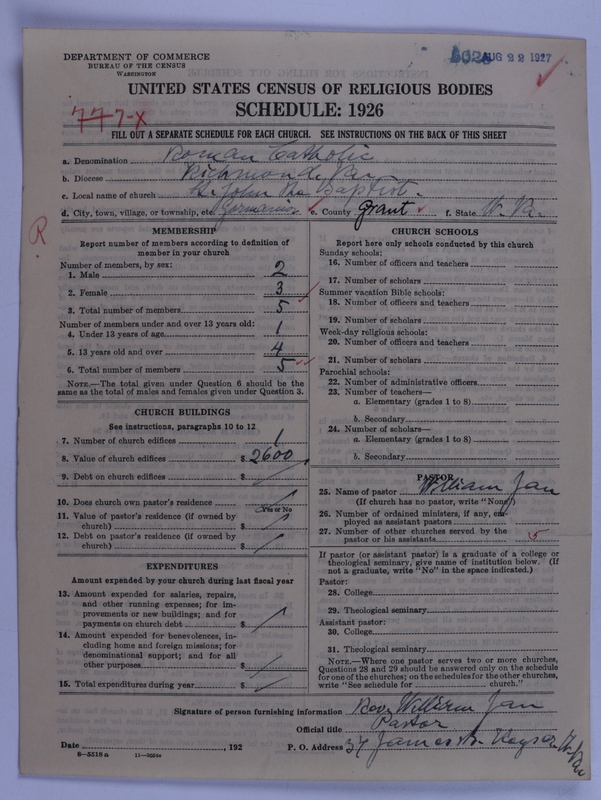 DEPARTMENT OF COMMERCE
BUREAU OF THE CENSUS
WASHINGTON
AUG 22 1927
UNITED STATES CENSUS OF RELIGIOUS BODIES
SCHEDULE: 1926
77 7-X
FILL OUT A SEPARATE SCHEDULE FOR EACH CHURCH. SEE INSTRUCTIONS ON THE BACK OF THIS SHEET
a. Denomination Roman Catholic
b. Diocese Richmond, Va.
c. Local name of church St. John the Baptist.
d. City, town, village, or township, etc. e. County Grant f. State W. Va.
R
MEMBERSHIP
Report number of members according to definition of
member in your church
Number of members, by sex:
1. Male 2
2. Female 3
3. Total number of members 5
Number of members under and over 13 years old:
4. Under 13 years of age 1
5. 13 years old and over 4
6. Total number of members 5
NOTE.—The total given under Question 6 should be the
same as the total of males and females given under Question 3.
CHURCH BUILDINGS
See instructions, paragraphs 10 to 12
7. Number of church edifices 1
8. Value of church edifices $ 2600
9. Debt on church edifices $
10. Does church own pastor's residence
Yes or No
11. Value of pastor's residence (if owned by
church) $
12. Debt on pastor's residence (if owned by
church) $
EXPENDITURES
Amount expended by your church during last fiscal year
13. Amount expended for salaries, repairs,
and other running expenses; for im-
provements or new buildings; and for
payments on church debt $
14. Amount expended for benevolences, in-
cluding home and foreign missions; for
denominational support; and for all
other purposes $
15. Total expenditures during year $
CHURCH SCHOOLS
Report here only schools conducted by this church
Sunday schools:
16. Number of officers and teachers
17. Number of scholars
Summer vacation Bible schools:
18. Number of officers and teachers
19. Number of scholars
Week-day religious schools:
20. Number of officers and teachers
21. Number of scholars
Parochial schools:
22. Number of administrative officers
23. Number of teachers—
a. Elementary (grades 1 to 8)
b. Secondary
24. Number of scholars—
a. Elementary (grades 1 to 8)
b. Secondary
PASTOR
25. Name of pastor William Jan
(If church has no pastor, write "None")
26. Number of ordained ministers, if any, em-
ployed as assistant pastors
27. Number of other churches served by the
pastor or his assistants 5
If pastor (or assistant pastor) is a graduate of a college or
theological seminary, give name of institution below. (If
not a graduate, write "No" in the space indicated.)
Pastor:
28. College
29. Theological seminary
Assistant pastor:
30. College
31. Theological seminary
NOTE.—Where one pastor serves two or more churches,
Questions 28 and 29 should be answered only on the schedule
for one of the churches; on the schedules for the other churches,
write "See schedule for church."
Signature of person furnishing information Rev. William Jan
Official title Pastor
Date , 192 P. O. Address 34 James St. Keyser, W. Va.
8—5518 a